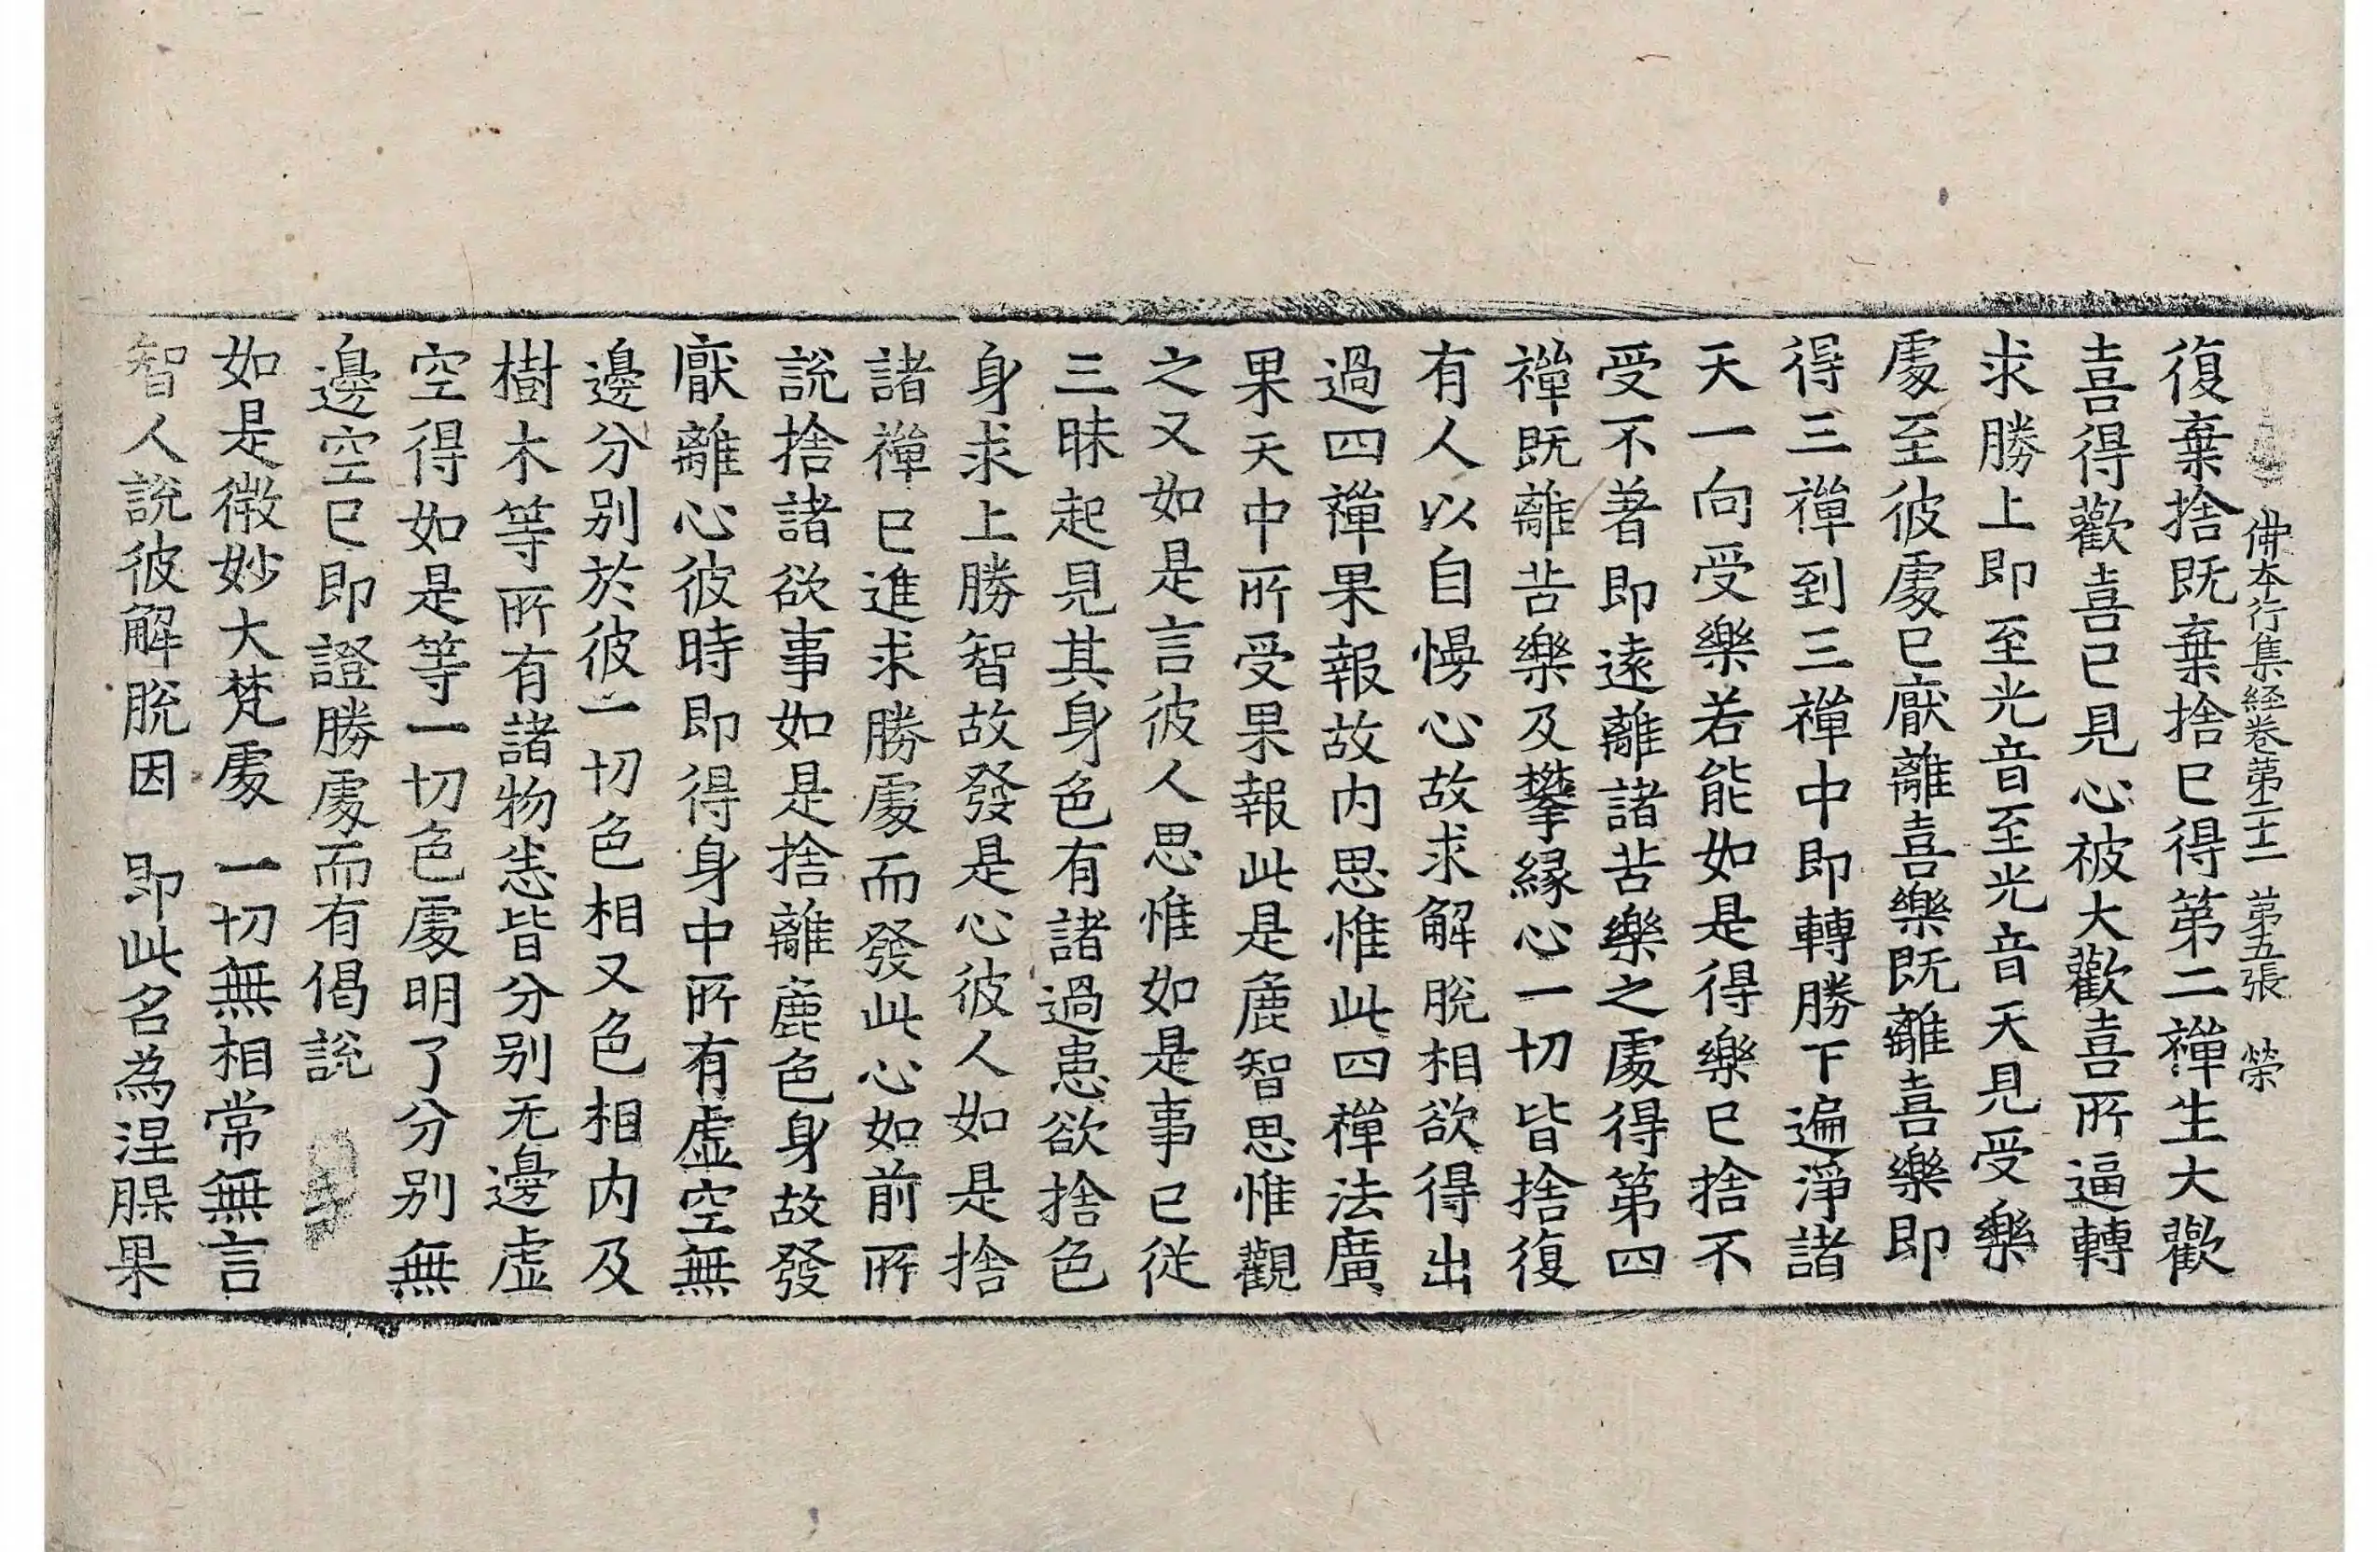 佛本行集経卷第二十二 第五張 榮
復棄捨既棄捨已得第二禪生大歡
喜得歡喜已見心被大歡喜所逼轉
求勝上即至光音至光音天見受樂
處至彼處已厭離喜樂既離喜樂即
得三禪到三禪中即轉勝下遍淨諸
天一向受樂若能如是得樂已捨不
受不著即遠離諸苦樂之處得第四
禪既離苦樂及攀縁心一切皆捨復
有人以自慢心故求解脫相欲得出
過四禪果報故內思惟此四禪法廣
果天中所受果報此是麁智思惟觀
之又如是言彼人思惟如是事已從
三昧起見其身色有諸過患欲捨色
身求上勝智故發是心彼人如是捨
諸禪已進求勝處而發此心如前所
說捨諸欲事如是捨離麁色身故發
厭離心彼時即得身中所有虛空無
邊分別於彼一切色相又色相內及
樹木等所有諸物悉皆分別无邊虛
空得如是等一切色處明了分別無
邊空已即證勝處而有偈說
如是微妙大梵處 一切無相常無言
智人說彼解脫因 即此名為涅腂果